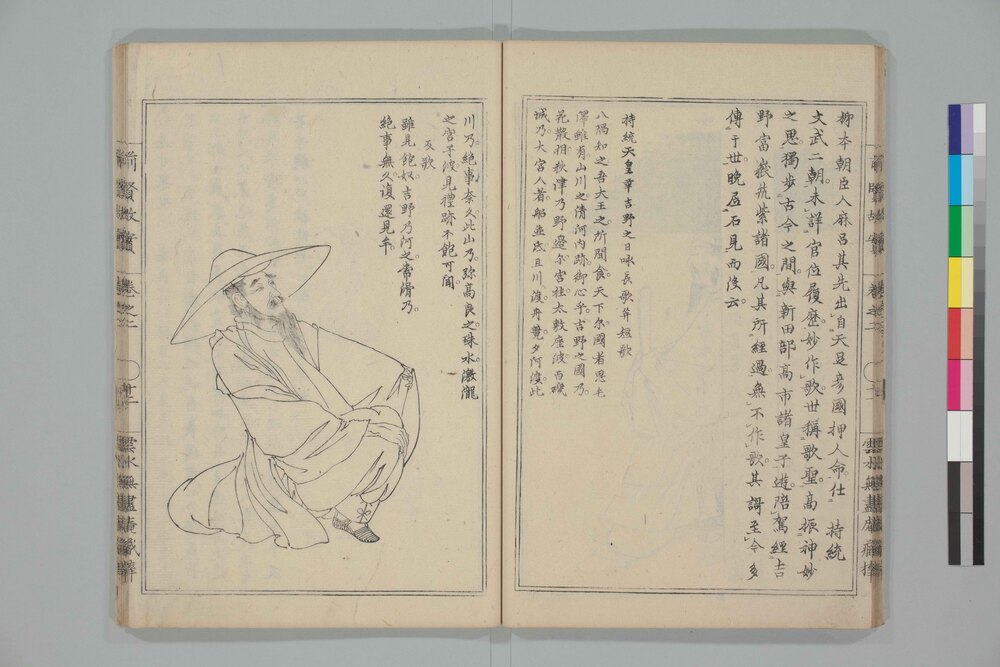 柿本朝臣人麻呂其先出自天足彦國押人命仕　持統
文武二朝未詳官位履歴妙作歌世稱歌聖高振神妙
之思獨歩古今之間與新田部高市諸皇子遊陪駕經吉
野富嶽筑紫諸國凡其所經過無不作歌其謌至今多
傳于世晩居石見而没云
持統天皇幸吉野之日咏長歌并短歌
八隅知之吾大王之所聞食天下尓國者思毛
澤雖有山川之清河内跡御心乎吉野之國乃
花散相秋津乃野邉尓宮柱太敷座波百磯
城乃大宮人者船並氐旦川渡舟競夕阿渡此
川乃絶事奈久此山乃弥高良之珠水激瀧
之宮子波見禮跡不飽可聞
反歌
雖見飽奴吉野乃河之常滑乃
絶事無久復還見牟
前賢故實
卷之二
雲水無盡庵